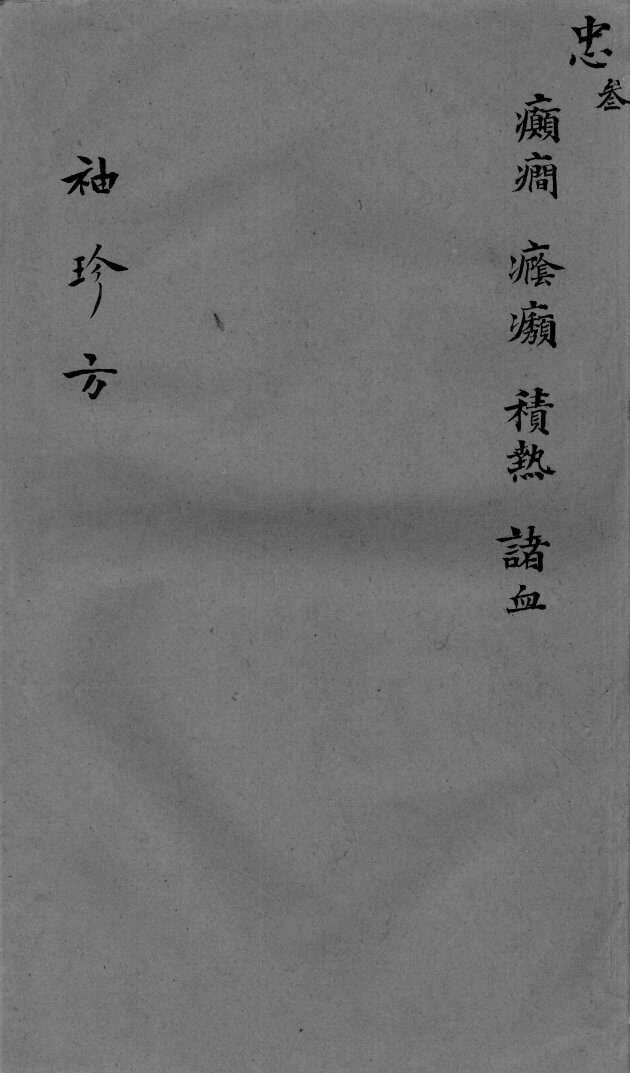 忠
叁
癲癇 癊癪 積熱 諸血
袖珍方